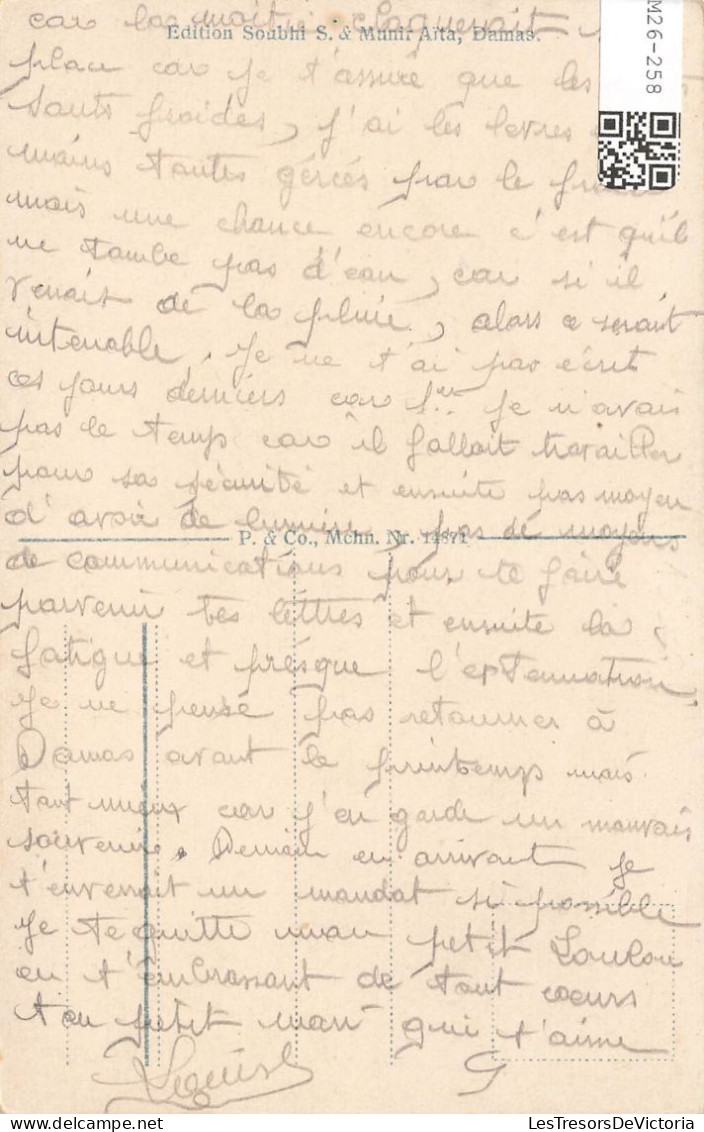 car la moitié claquerait
Edition Soubhi S. & Munir Aïta, Damas.
M26-258
place car je t'assure que les
sont froides, j'ai les levres
mains toutes gércés par le froid
mais une chance encore c'est qu'il
ne tombe pas d'eau, car si il
venait de la pluie, alors ce serait
intenable. Je ne t'ai pas écrit
ces jours derniers car je n'avais
pas le temps car il fallait travailler
pour sa sécurité et ensuite pas moyen
d'avoir de lumière, pas de moyens
P. & Co., Mchn. Nr. 14871
de communications pour te faire
parvenir tes lettres et ensuite la
fatigue et présque l'extenuation,
Je ne pense pas retourner à
Damas avant le printemps mais
tant mieux car j'en garde un mauvais
souvenir. Demain en arrivant je
t'enverrait un mandat si possible
Je te quitte mon petit Loulou
en t'embrassant de tout coeurs
ton petit man qui t'aime
LesTresorsDeVictoria.com